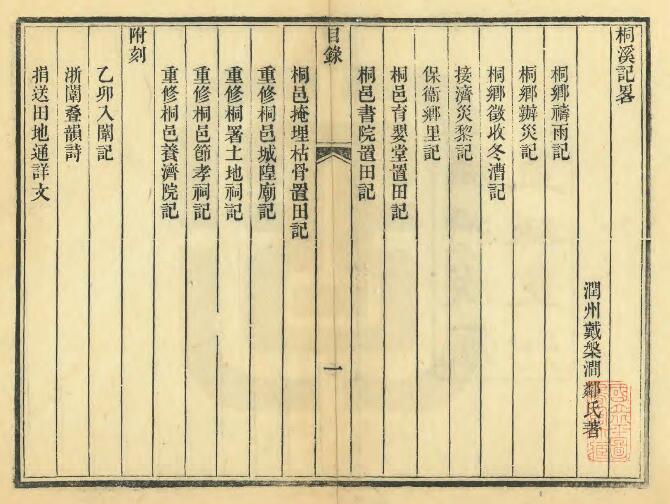 桐溪記畧
潤州戴槃澗鄰氏著
桐鄉禱雨記
桐鄉辦災記
桐鄉徵收冬漕記
接濟災黎記
保衞鄉里記
桐邑育嬰堂置田記
桐邑書院置田記
目錄
一
桐邑掩埋枯骨置田記
重修桐邑城隍廟記
重修桐署土地祠記
重修桐邑節孝祠記
重修桐邑養濟院記
附刻
乙卯入闈記
浙闈叠韻詩
捐送田地通詳文